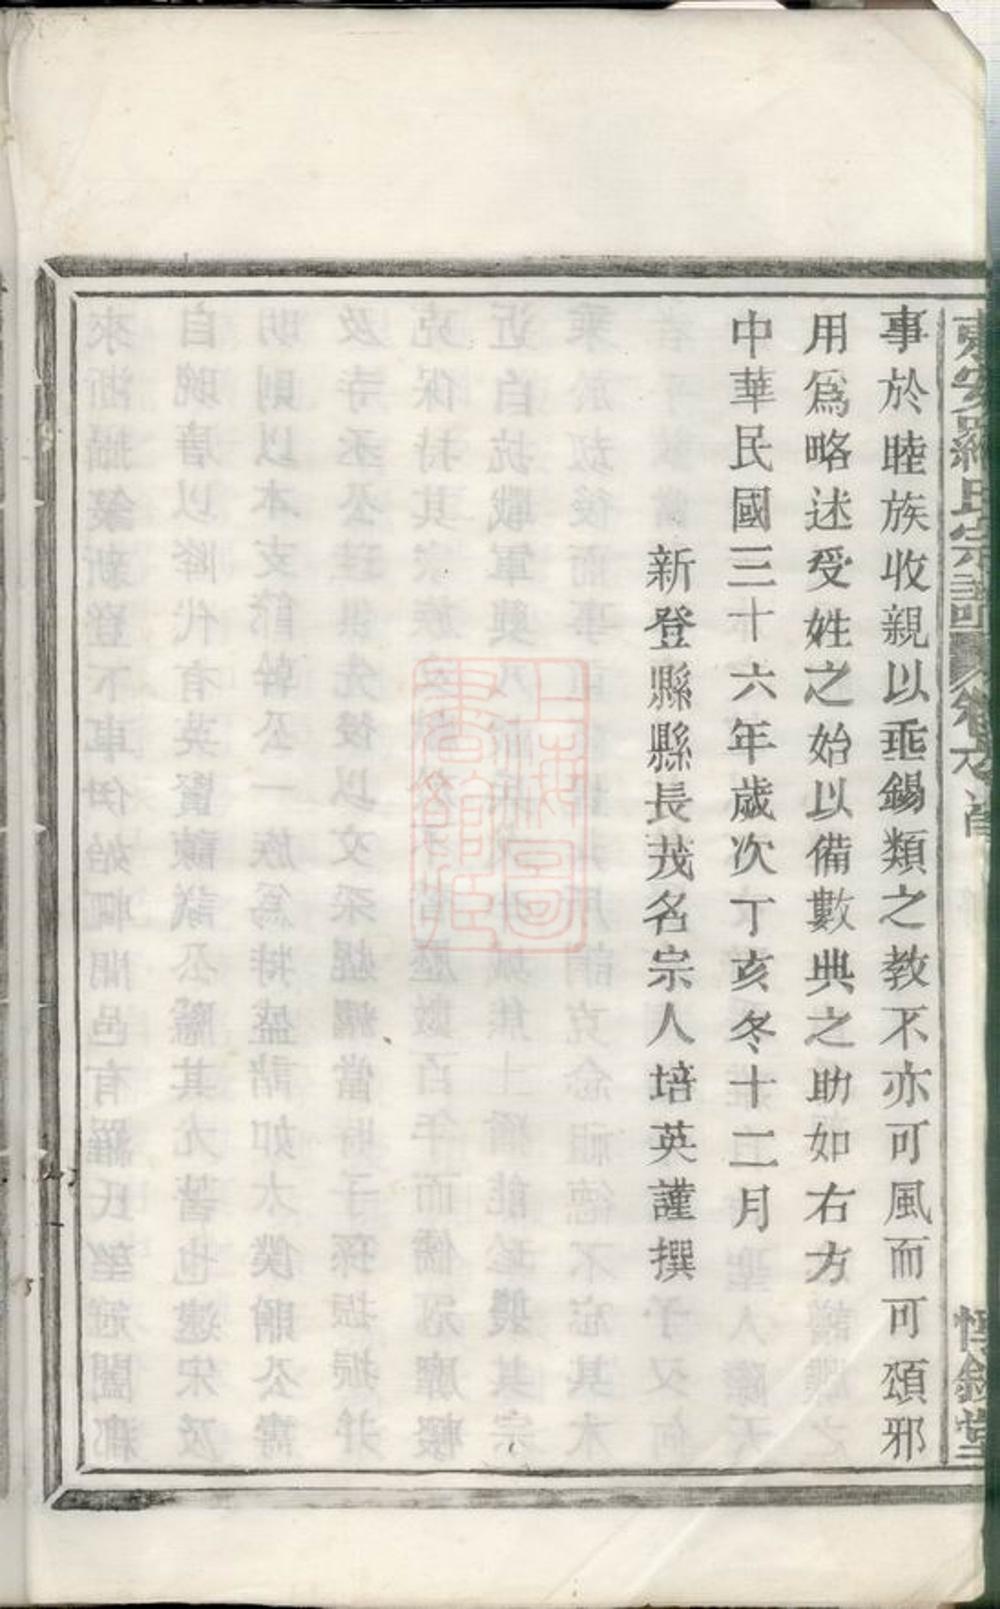 東安羅氏宗譜 卷之首
惇敘堂
事於睦族收親以垂錫類之教不亦可風而可頌邪
用爲略述受姓之始以備數典之助如右方
中華民國三十六年歲次丁亥冬十二月
新登縣縣長茂名宗人培英謹撰
上海圖書館藏